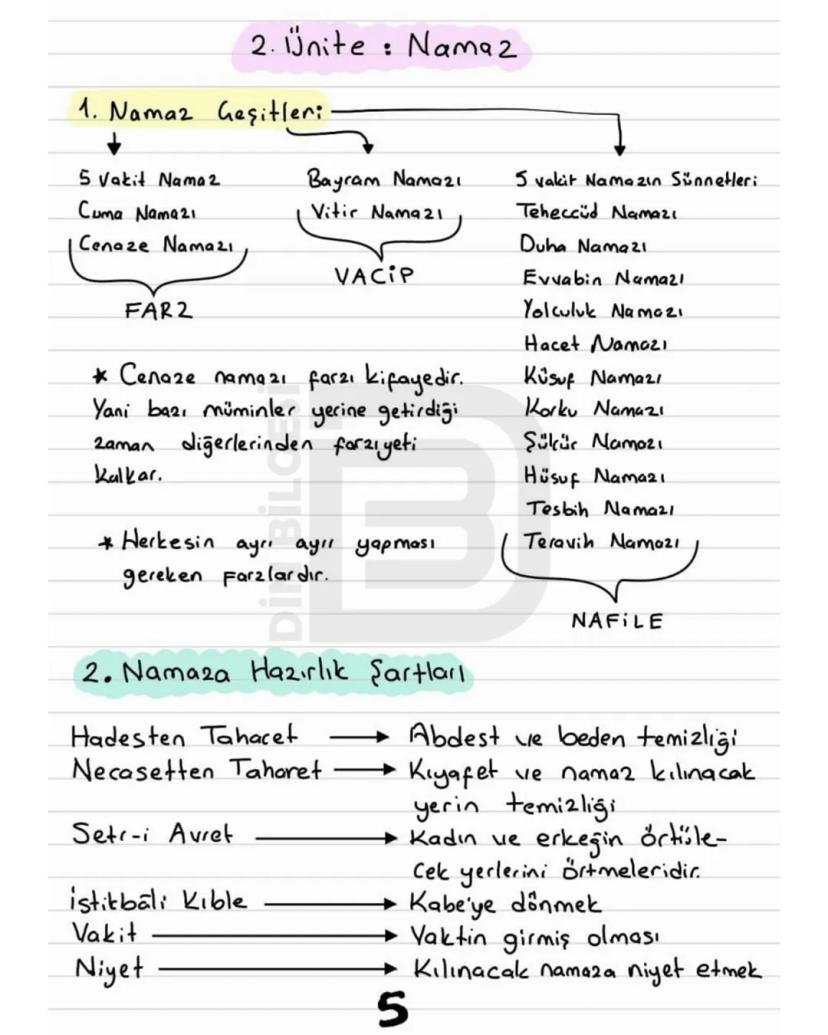 2. Ünite : Namaz
1. Namaz Çeşitleri
5 Vakit Namaz
Cuma Namazı
Cenaze Namazı
FARZ
Bayram Namazı
Vitir Namazı
VACİP
5 vakit Namazın Sünnetleri
Teheccüd Namazı
Duha Namazı
Evvabin Namazı
Yolculuk Namazı
Hacet Namazı
Küsuf Namazı
Korku Namazı
Şükür Namazı
Hüsuf Namazı
Tesbih Namazı
Teravih Namazı
NAFİLE
* Cenaze namazı farzı kifayedir.
Yani bazı müminler yerine getirdiği
zaman diğerlerinden farziyeti
kalkar.
* Herkesin ayrı ayrı yapması
gereken Farzlardır.
DİN BİLGESİ
2. Namaza Hazırlık Şartları
Hadesten Taharet → Abdest ve beden temizliği
Necasetten Taharet → Kıyafet ve namaz kılınacak
yerin temizliği
Setr-i Avret → Kadın ve erkeğin örtüle-
cek yerlerini örtmeleridir.
İstikbâli Kıble → Kabe'ye dönmek
Vakit → Vaktin girmiş olması
Niyet → Kılınacak namaza niyet etmek
5